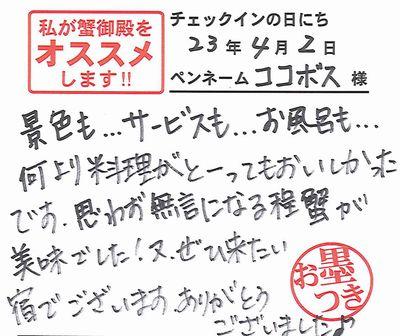 私が蟹御殿を
オススメ
します!!
チェックインの日にち
23年4月2日
ペンネーム ココボス 様
景色も…サービスも…お風呂も…
何より料理がとーってもおいしかった
です。思わず無言になる程蟹が
美味でした!又、ぜひ来たい
宿でございます。ありがとう
ございました
お墨つき